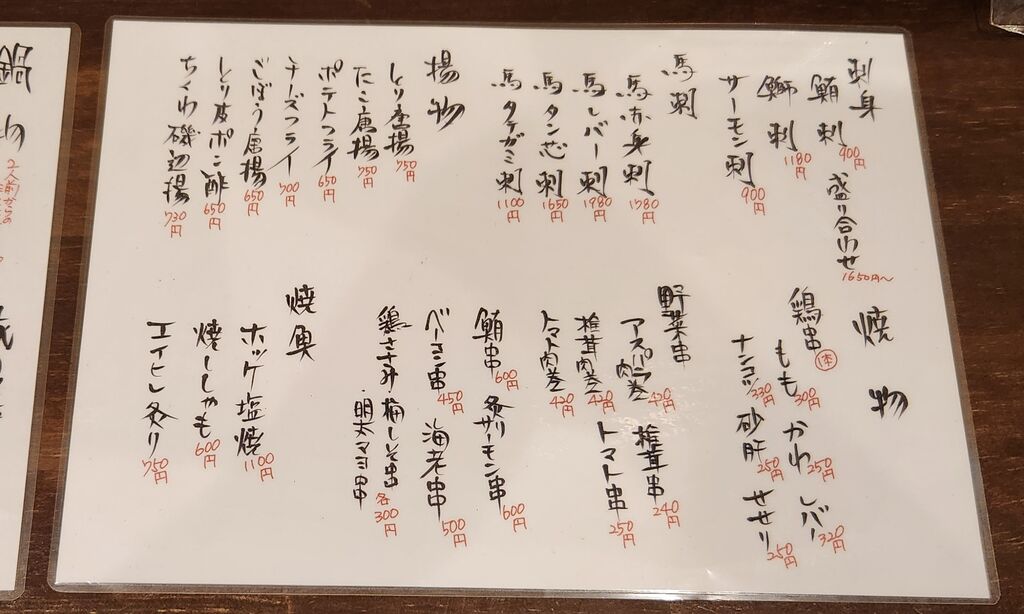 刺身
鮪刺 900円
盛り合わせ 1650円~
鰤刺 1180円
サーモン刺 900円
馬刺
馬赤身刺 1780円
馬レバー刺 1980円
馬タン芯刺 1650円
馬タテガミ刺 1100円
揚物
とり唐揚 750円
たこ唐揚 750円
ポテトフライ 650円
チーズフライ 700円
ごぼう唐揚 650円
とり皮ポン酢 650円
ちくわ磯辺揚 730円
焼物
鶏串 1本
もも 300円
かわ 250円
レバー 320円
ナンコツ 330円
砂肝 250円
せせり 250円
野菜串
アスパラ肉巻 420円
椎茸串 240円
椎茸肉巻 420円
トマト串 250円
トマト肉巻 420円
鮪串 600円
炙りサーモン串 600円
ベーコン串 450円
海老串 500円
鶏ささみ・梅しそ串
・明太マヨ串 各300円
焼魚
ホッケ塩焼 1100円
焼ししゃも 600円
エイヒレ炙り 750円
鍋物
2人前からの